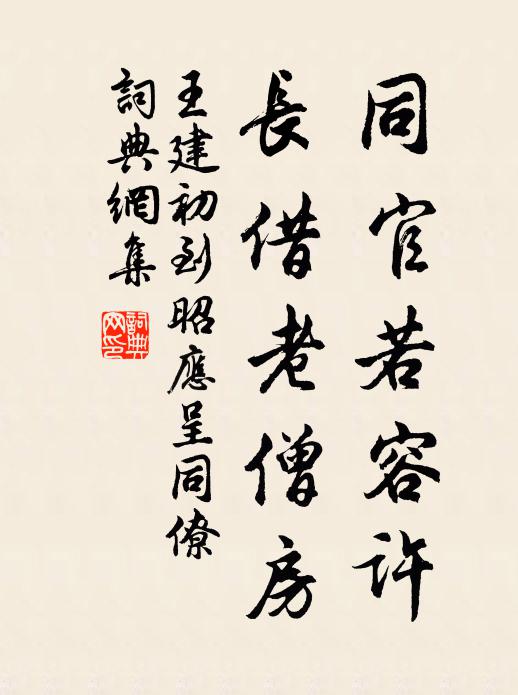 同官若容許
長借老僧房
王建初到昭應呈同僚
詞典網集
詞典
网印